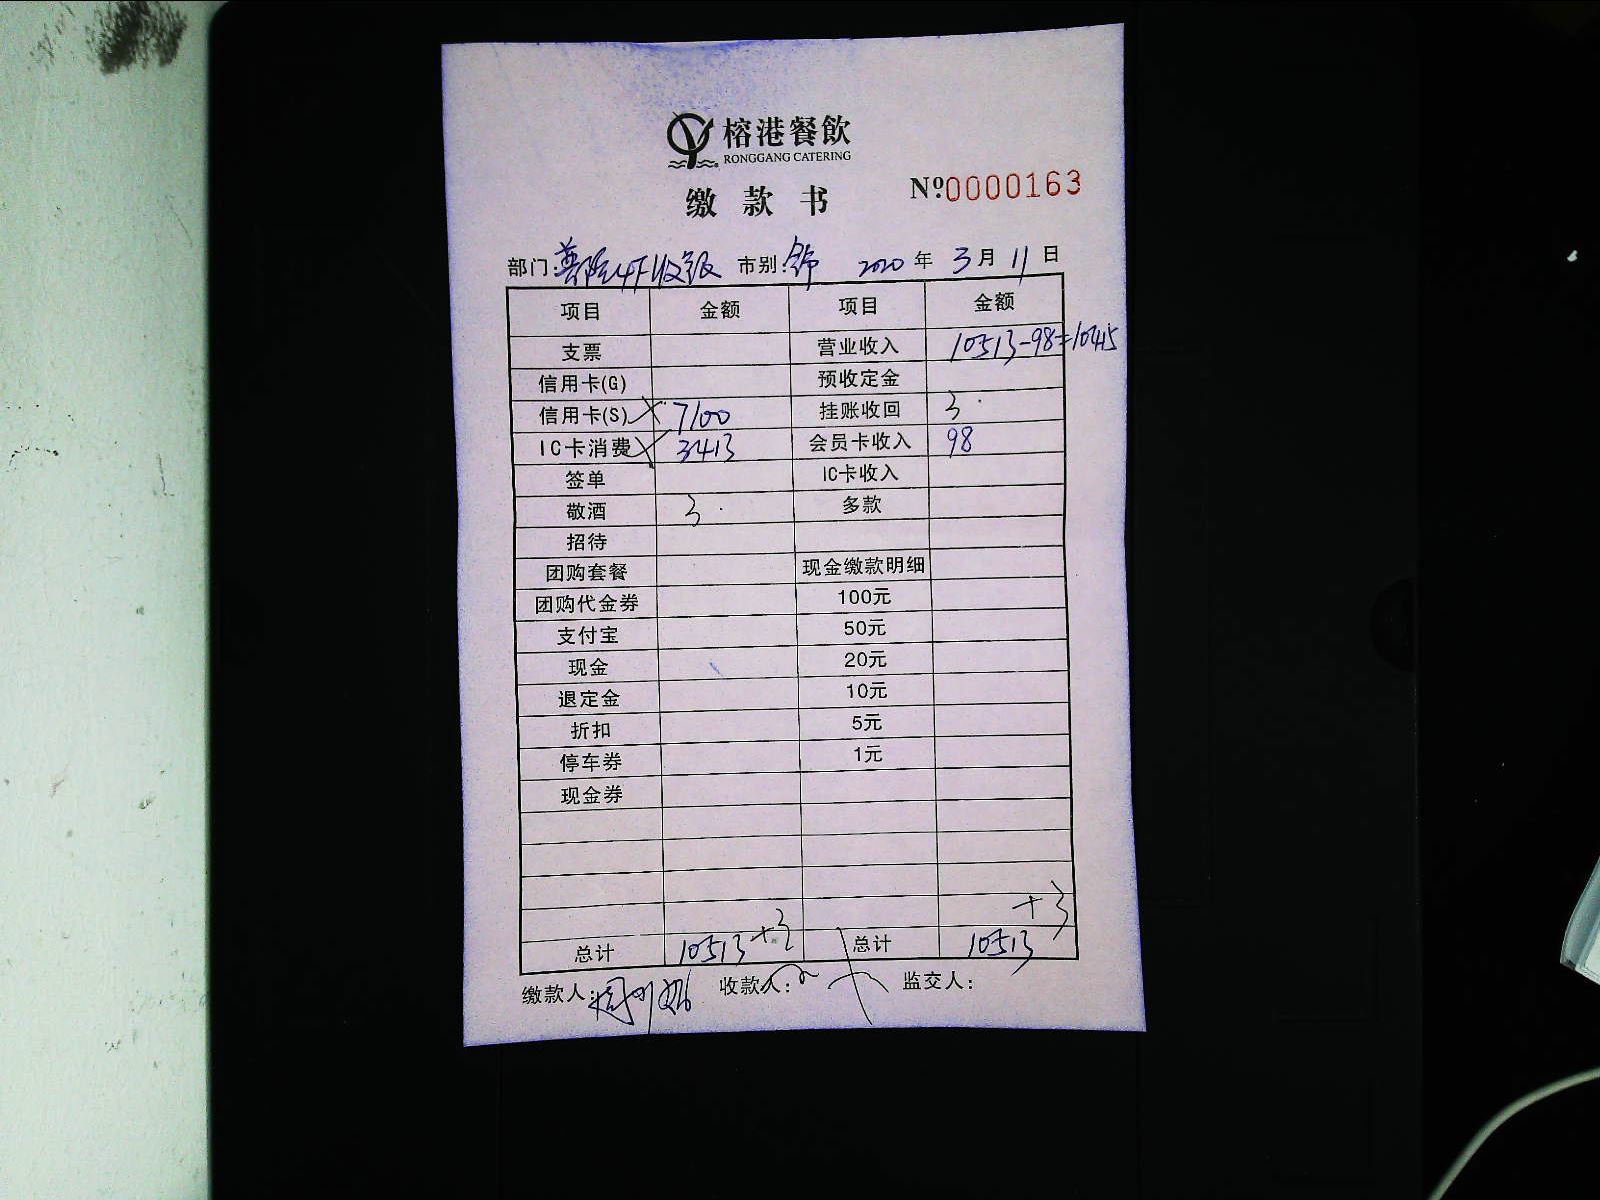 榕港餐飲
RONGGANG CATERING
缴款书 №0000163
部门: 4F收银 市别: 2020年3月11日
项目 金额 项目 金额
支票 营业收入 10513-98=10415
信用卡(G) 预收定金
信用卡(S) 7100 挂账收回 3
IC卡消费 3413 会员卡收入 98
签单 IC卡收入
敬酒 3 多款
招待
团购套餐 现金缴款明细
团购代金券 100元
支付宝 50元
现金 20元
退定金 10元
折扣 5元
停车券 1元
现金券
+3
总计 10513+3 总计 10513
缴款人: 收款人: 监交人: